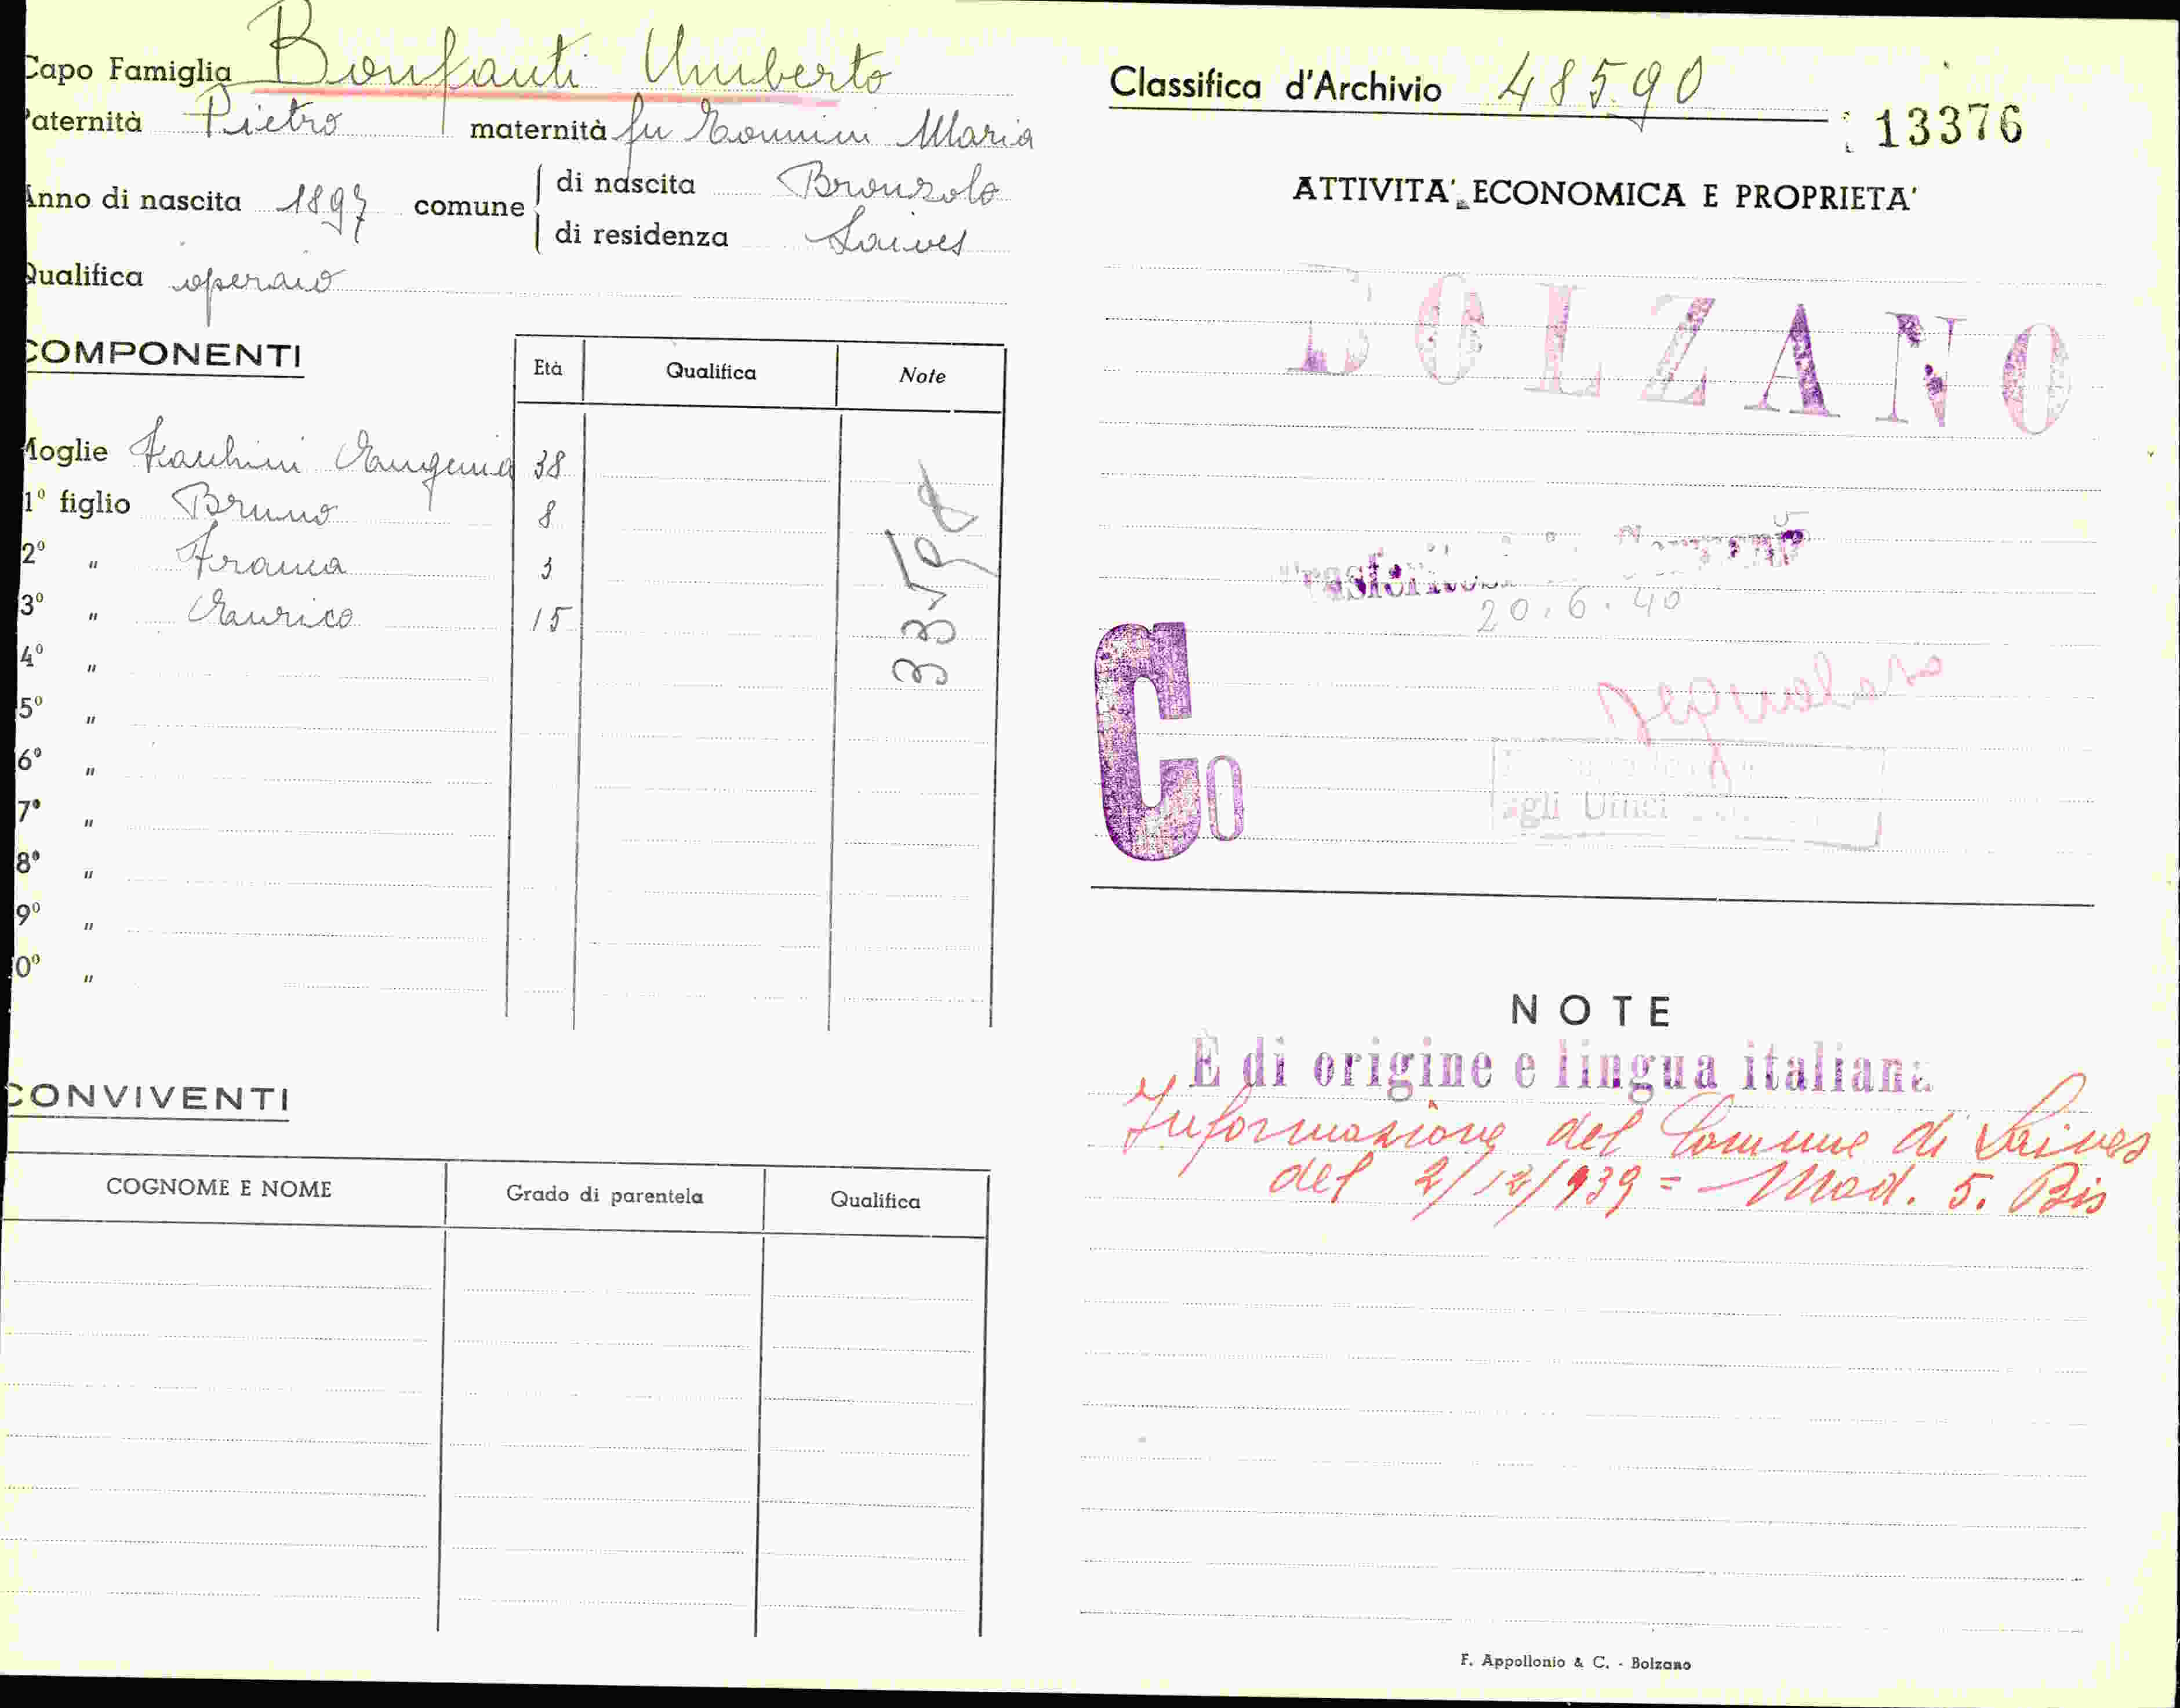 Capo Famiglia Bonfanti Umberto
Paternità Pietro maternità fu Maria
Anno di nascita 1897 comune di nascita Bronzolo
di residenza Laives
Qualifica operaio
COMPONENTI
Età Qualifica Note
Moglie 38
1º figlio Bruno 8
2º " Franca 3
3º " Enrico 15
4º "
5º "
6º "
7º "
8º "
9º "
0º "
CONVIVENTI
COGNOME E NOME Grado di parentela Qualifica
Classifica d'Archivio 48590
13376
ATTIVITA' ECONOMICA E PROPRIETA'
BOLZANO
20.6.40
Co
NOTE
È di origine e lingua italiana
Informazione del Comune di Laives
del 2/12/939 = Mod. 5. Bis
F. Appollonio & C. - Bolzano